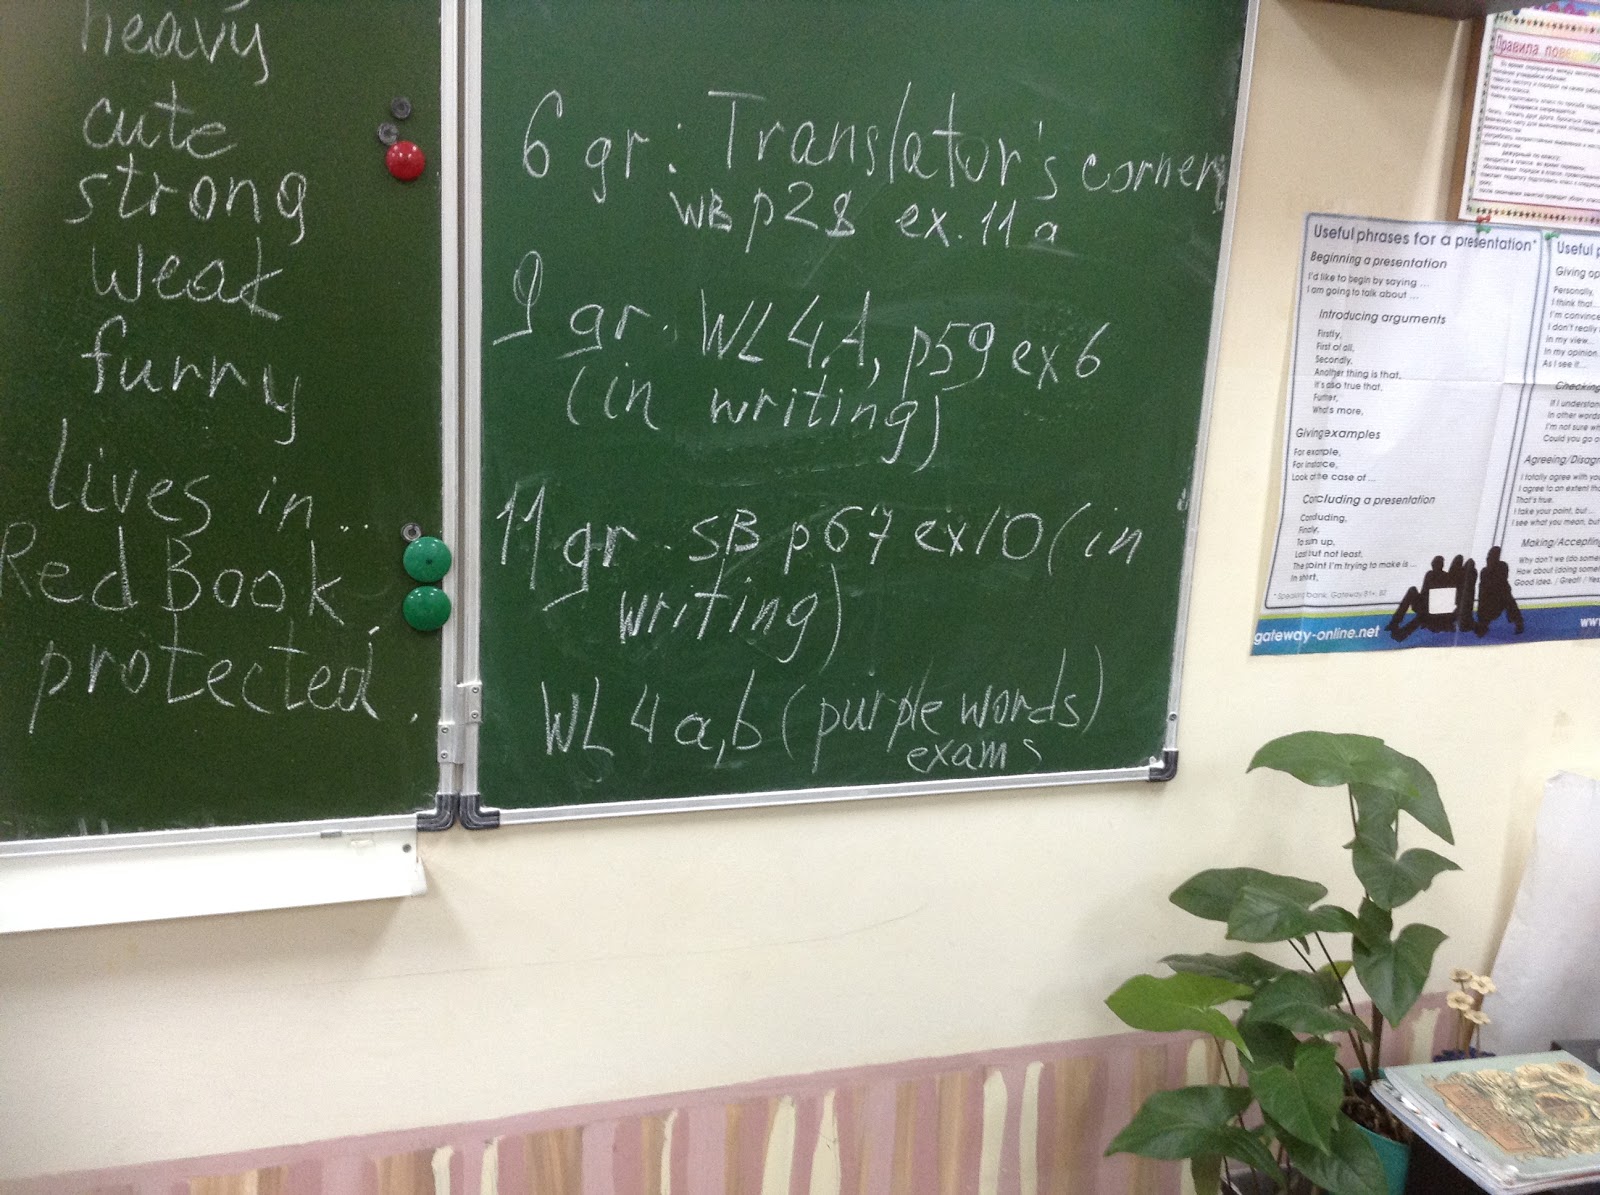 heavy
cute
strong
weak
furry
lives in ...
Red Book
protected.
6 gr: Translator's corner,
WB p28 ex. 11 a
9 gr. WL 4A, p59 ex 6
(in writing)
11 gr. SB p67 ex10 (in
writing)
WL 4 a,b (purple words)
exams
Правила
Useful phrases for a presentation*
Beginning a presentation
I'd like to begin by saying ...
I am going to talk about ...
Introducing arguments
Firstly,
First of all,
Secondly,
Another thing is that,
It's also true that,
Further,
What's more,
Giving examples
For example,
For instance,
Look at the case of ...
Concluding a presentation
Concluding,
Finally,
To sum up,
Last but not least,
The point I'm trying to make is ...
In short,
* Speaking bank, Gateway B1+, B2
gateway-online.net
Useful
Giving
Personally,
I think that...
I'm
I don't really
In my view...
In my opinion
As I see it...
Checking
If I
In other words
I'm not sure
Could you go
Agreeing/
I totally agree with
I agree to an extent
That's true.
I take your point, but ...
I see what you mean, but
Making/
Why don't we
How about
Good idea. / Great! /